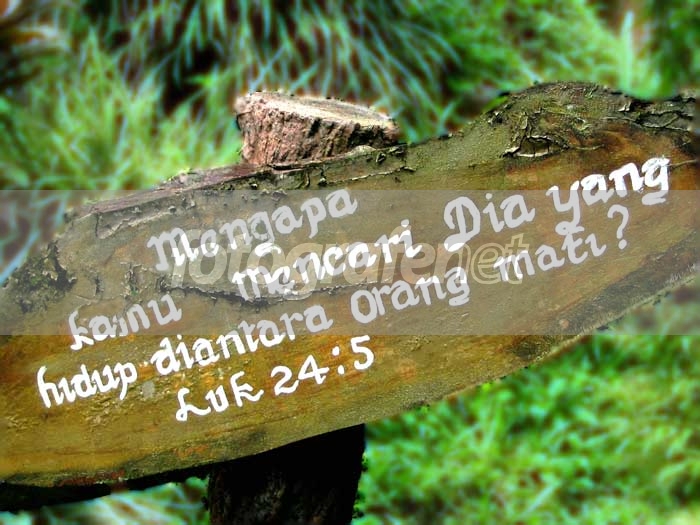 Mengapa
kamu mencari Dia yang
hidup diantara orang mati?
Luk 24:5
fotografer.net